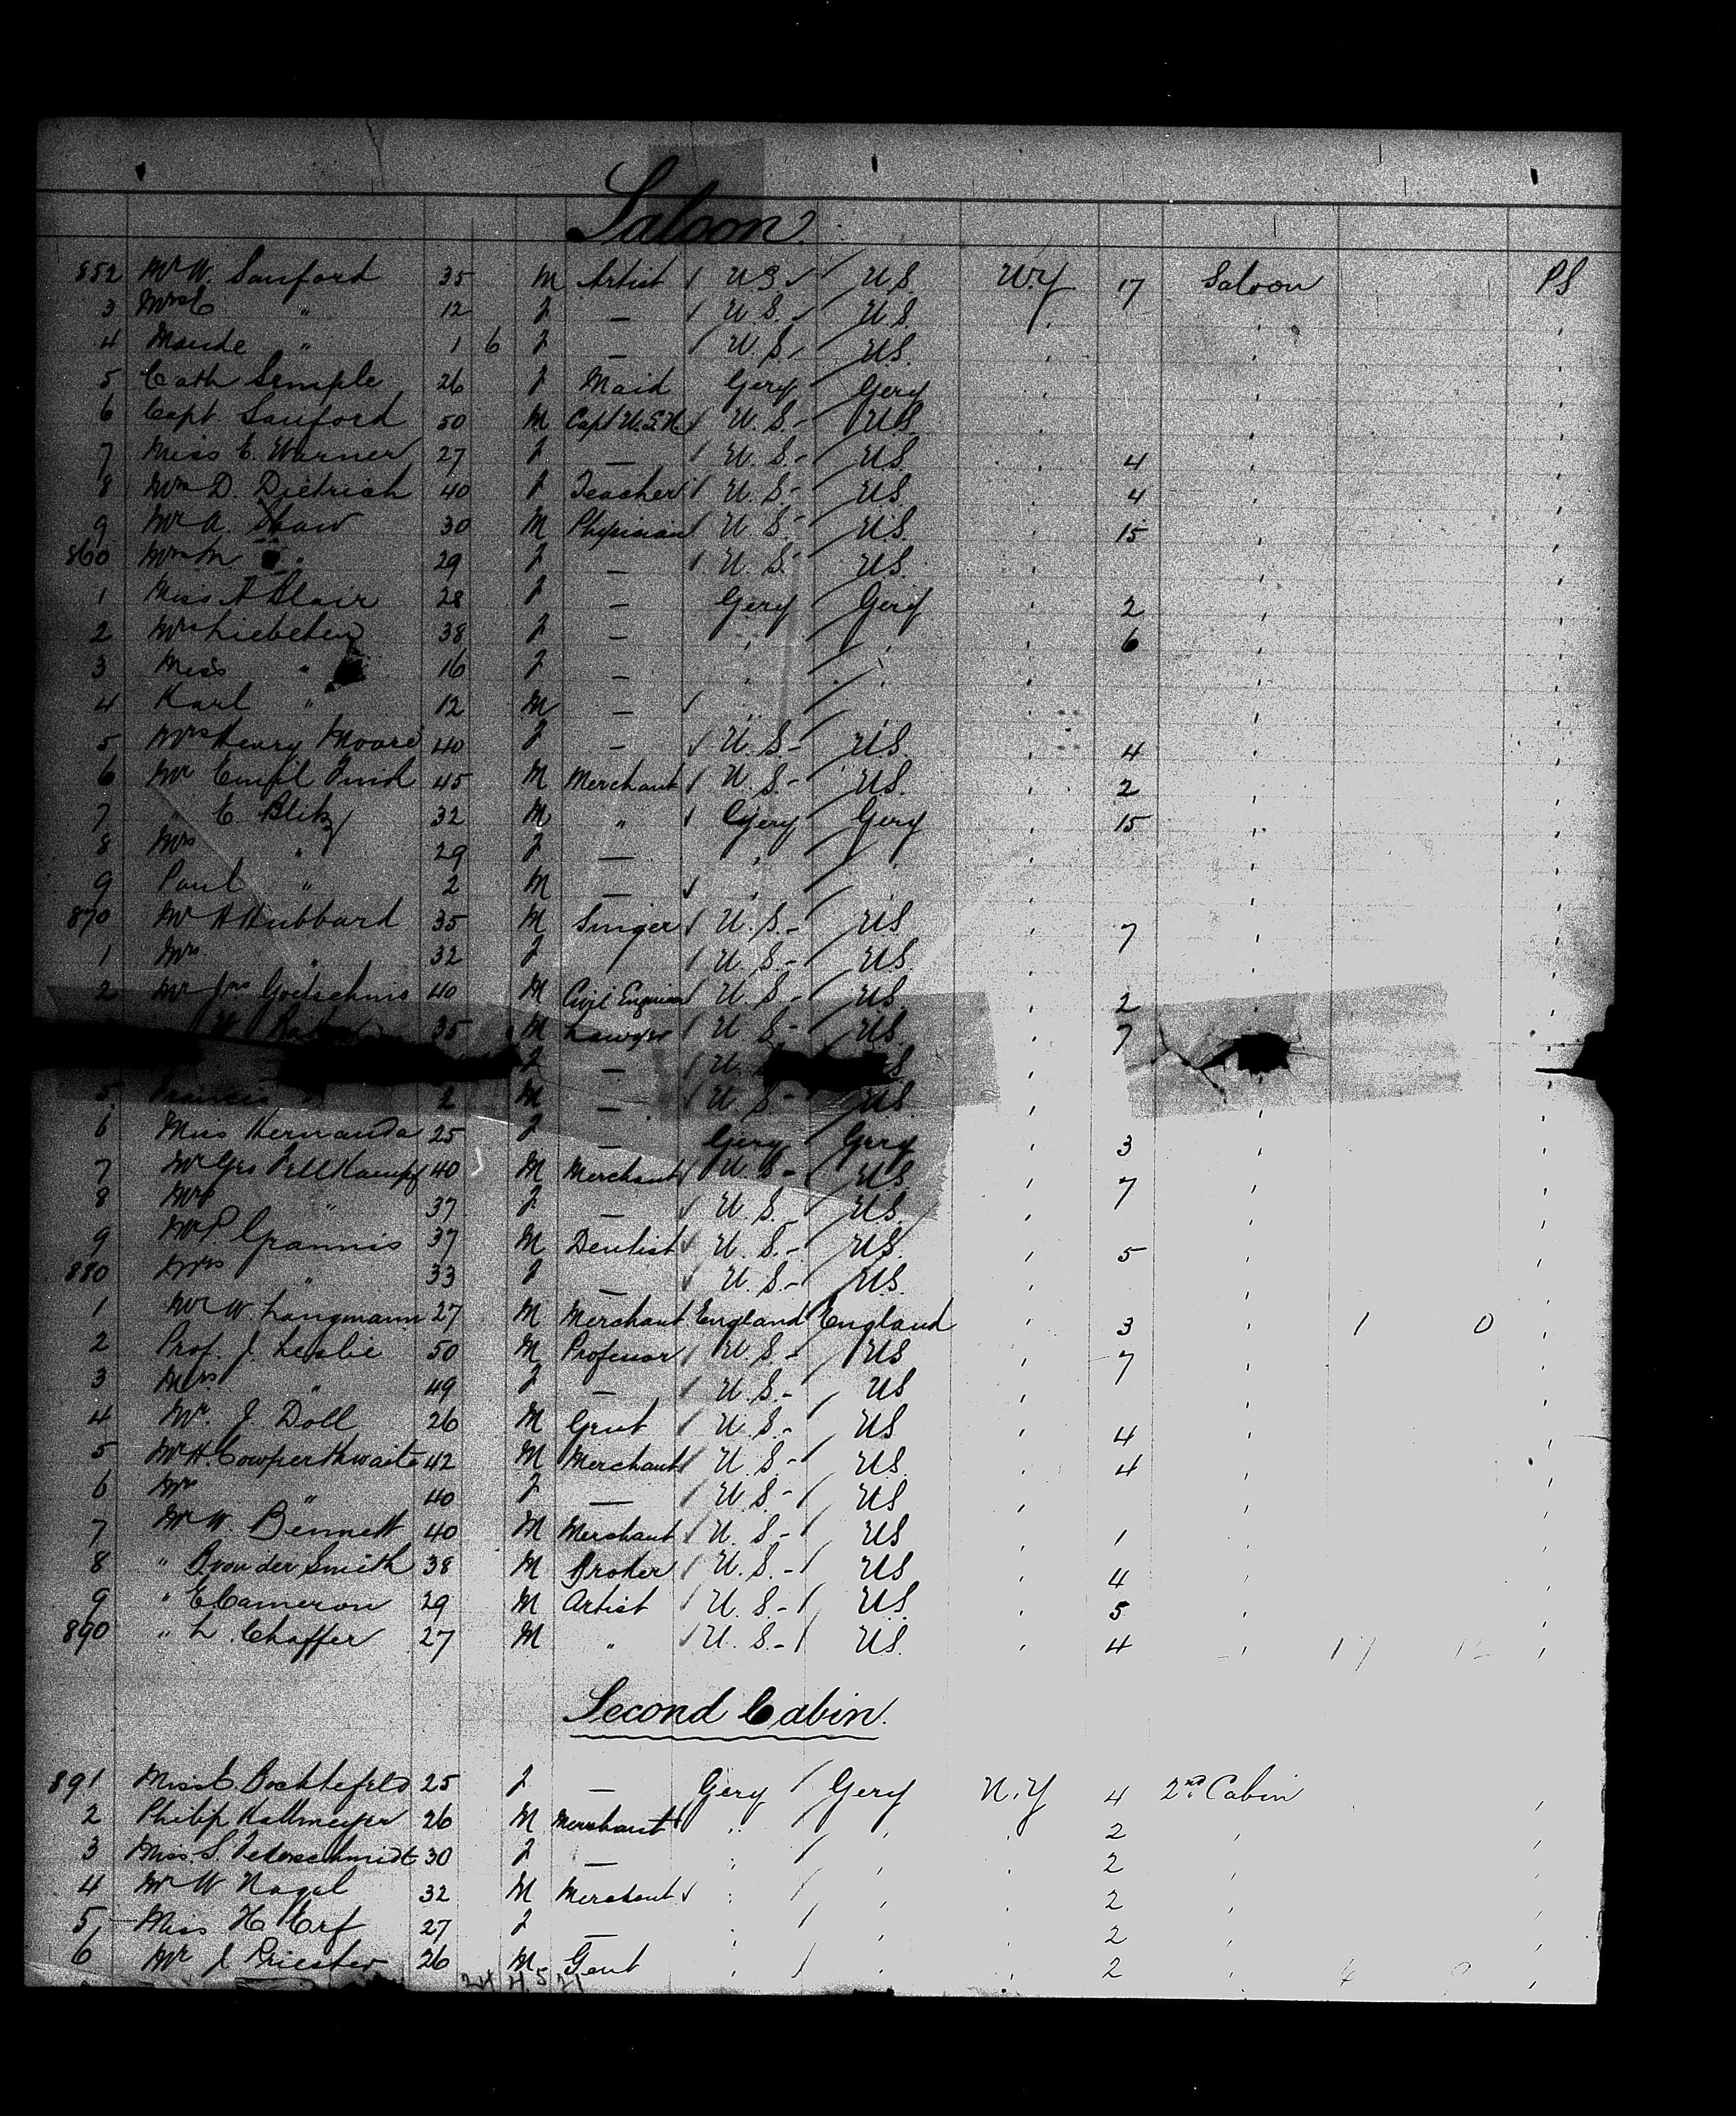 Saloon.
852 Mr W. Sanford 35 M Artist U S U.S. N.Y 17 Saloon PS
3 Mrs C. " 12 F — U.S. U.S.
4 Maude " 1 6 F — U.S. U.S.
5 Cath Semple 26 F Maid Gery Gery
6 Capt Sanford 50 M Capt U.S.N. U.S. U.S.
7 Miss E. Warner 27 F — U.S. U.S. 4
8 Mrs D. Dietrich 40 F Teacher U.S. U.S. 4
9 Mr A. Shaw 30 M Physician U.S. U.S. 15
860 Mrs M " 29 F — U.S. U.S.
1 Miss A Blair 28 F — Gery Gery 2
2 Mrs 38 F — " " 6
3 Miss " 16 F — " "
4 Karl " 12 M — "
5 Mrs Henry Moore 40 F — U.S. U.S. 4
6 Mr Emil 45 M Merchant U.S. U.S. 2
7 " E. Blitz 32 M " Gery Gery 15
8 Mrs " 29 F — "
9 Paul " 2 M — "
870 Mr H Hubbard 35 M Singer U.S. U.S. 7
1 Mrs " 32 F U.S. U.S.
2 Mr Jno Goetschius 40 M Civil Engineer U.S. U.S. 2
35 M Lawyer U.S. U.S. 7
F — U S
5 Francis " 2 M — U.S. U.S.
6 Miss Hernanda 25 F — Gery Gery 3
7 Mr Geo Fellkampf 40 M Merchant U.S. U.S. 7
8 Mrs " 37 F — U.S. U.S.
9 Mr P. Grannis 37 M Dentist U.S. U.S. 5
880 Mrs " 33 F — U.S. U.S.
1 Mr W. Langmann 27 M Merchant England England 3 1 0
2 Prof. J. Leslie 50 M Professor U.S. U.S 7
3 Mrs " 49 F — U.S. U.S
4 Mr. J. Doll 26 M Gent U.S. U.S 4
5 Mr H. Cowperthwaite 42 M Merchant U.S. U.S. 4
6 Mrs " 40 F — U.S. U.S
7 Mr W. Bennett 40 M Merchant U.S. U.S 1
8 " B von der Smith 38 M Broker U.S. U.S 4
9 " E Cameron 29 M Artist U.S. U.S. 5
890 " L. Chaffer 27 M " U.S. U.S. 4
Second Cabin.
891 Miss E. Bockhefeld 25 F — Gery Gery N.Y 4 2nd Cabin
2 Philip Kallmeyer 26 M Merchant " " 2
3 Miss. S. Peterschmidt 30 F — " " 2
4 Mr W Nagel 32 M Merchant " " 2
5 Miss H Erf 27 F — " " 2
6 Mr J Priester 26 M Gent " " 2